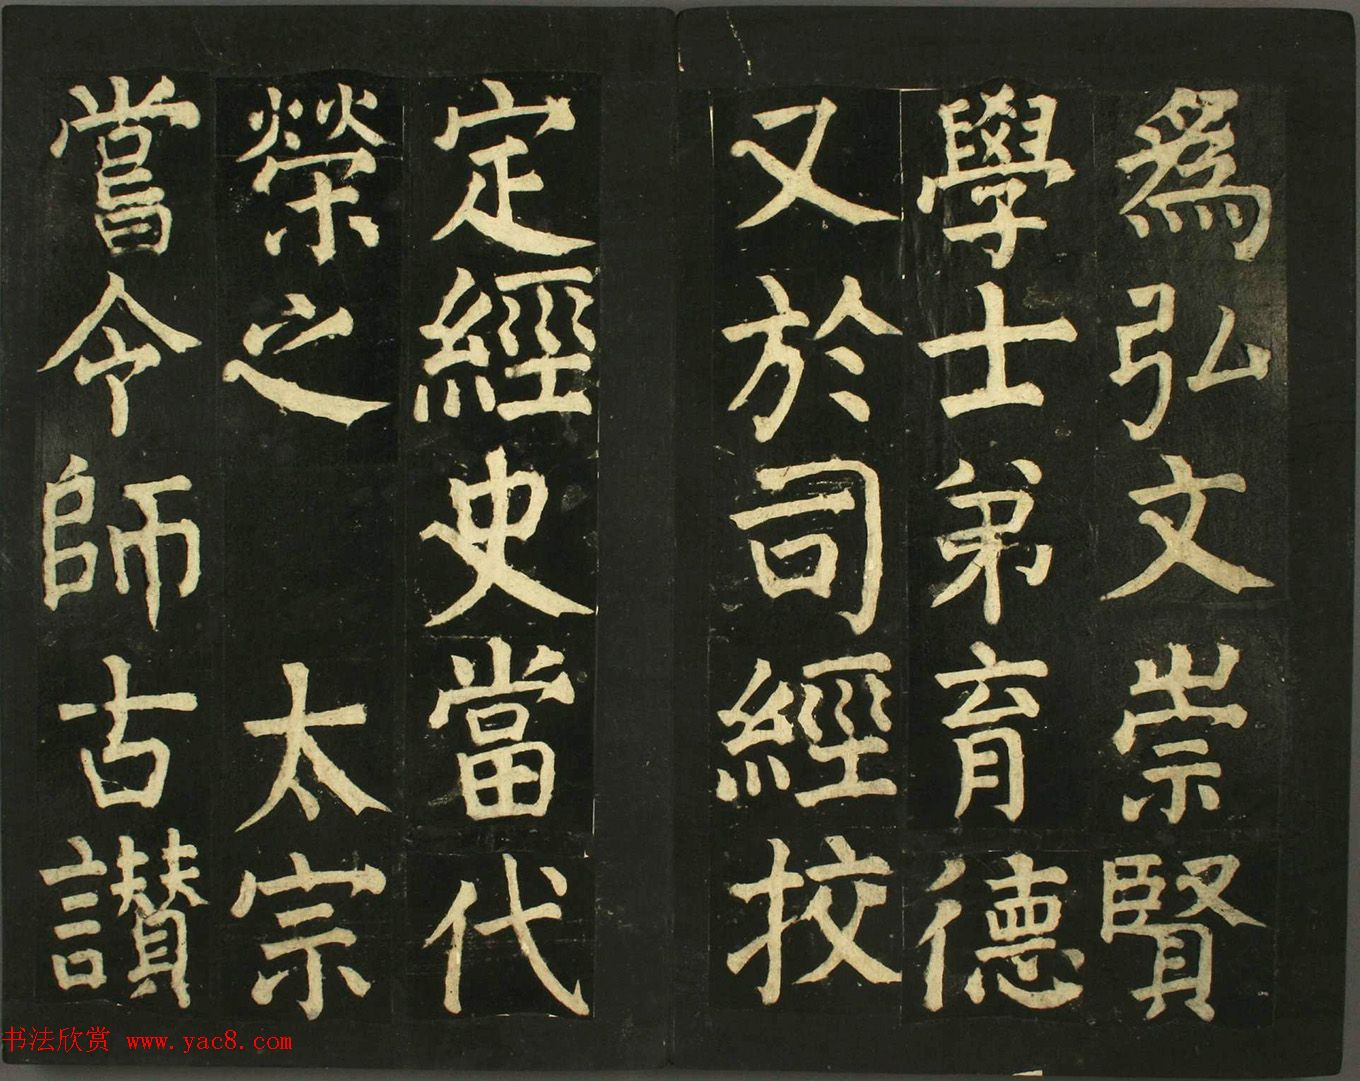 爲弘文崇賢
學士弟育德
又於司經挍
定經史當代
榮之 太宗
嘗令師古讃
书法欣赏 www.yac8.com